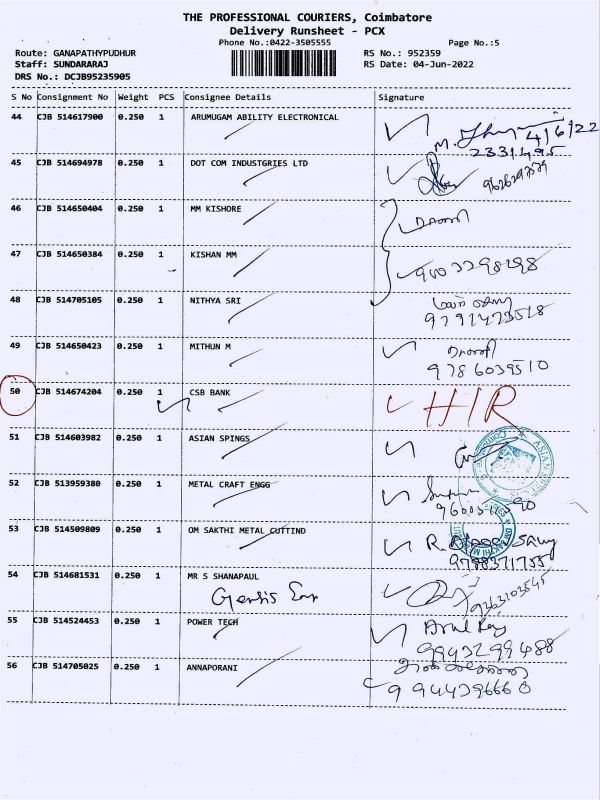 THE PROFESSIONAL COURIERS, Coimbatore
Delivery Runsheet - PCX
Phone No.:0422-3505555 Page No.:5
Route: GANAPATHYPUDHUR RS No.: 952359
Staff: SUNDARARAJ RS Date: 04-Jun-2022
DRS No.: DCJB95235905
S No Consignment No Weight PCS Consignee Details Signature
44 CJB 514617900 0.250 1 ARUMUGAM ABILITY ELECTRONICAL
4/6/22
2331495
45 CJB 514694978 0.250 1 DOT COM INDUSTGRIES LTD
46 CJB 514650404 0.250 1 MM KISHORE
47 CJB 514650384 0.250 1 KISHAN MM
9003298298
48 CJB 514705105 0.250 1 NITHYA SRI
9791473518
49 CJB 514650423 0.250 1 MITHUN M
9786039510
50 CJB 514674204 0.250 1 CSB BANK
H/R
51 CJB 514603982 0.250 1 ASIAN SPINGS
52 CJB 513959380 0.250 1 METAL CRAFT ENGG
53 CJB 514509809 0.250 1 OM SAKTHI METAL CUTTIND
9788371755
54 CJB 514681531 0.250 1 MR S SHANAPAUL
9363103545
55 CJB 514524453 0.250 1 POWER TECH
Arul Raj
9943299488
56 CJB 514705025 0.250 1 ANNAPORANI
9944396660